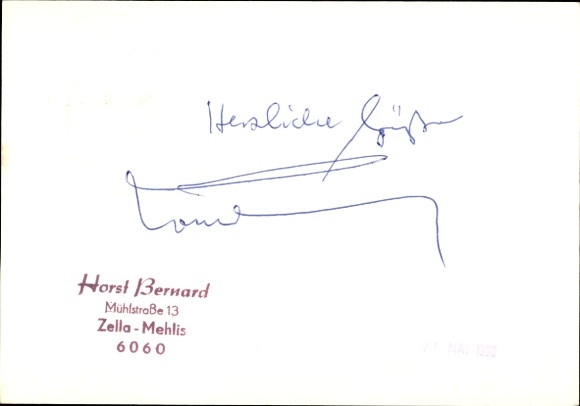 Herzliche Grüße
Horst Bernard
Mühlstraße 13
Zella-Mehlis
6060
MAI